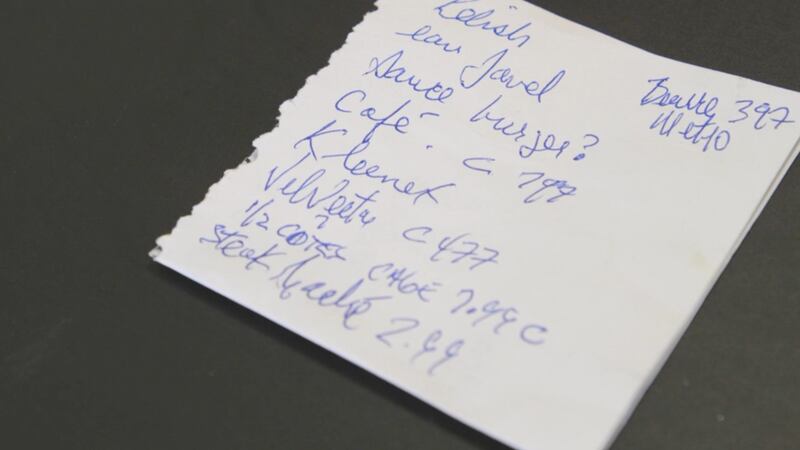 Relish
eau Javel
Sauce burger?
Café C 799
Kleenex
Velveeta C 477
1/2 COTEX 7.99 C
Steak haché 2.99
Beurre 397
Metro